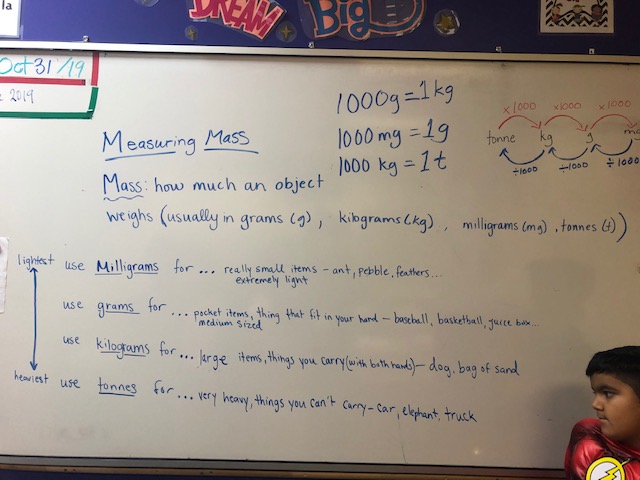 la
DREAM
Big
Oct 31/19
2019
1000g = 1kg
1000 mg = 1g
1000 kg = 1t
x1000 x1000 x1000
tonne kg g
÷1000 ÷1000 ÷1000
Measuring Mass
Mass: how much an object
weighs (usually in grams (g), kilograms (kg), milligrams (mg), tonnes (t))
lightest
use Milligrams for... really small items - ant, pebble, feathers...
extremely light
use grams for... pocket items, thing that fit in your hand - baseball, basketball, juice box...
medium sized
use kilograms for... large items, things you carry (with both hands) - dog, bag of sand
heaviest
use tonnes for... very heavy, things you can't carry - car, elephant, truck